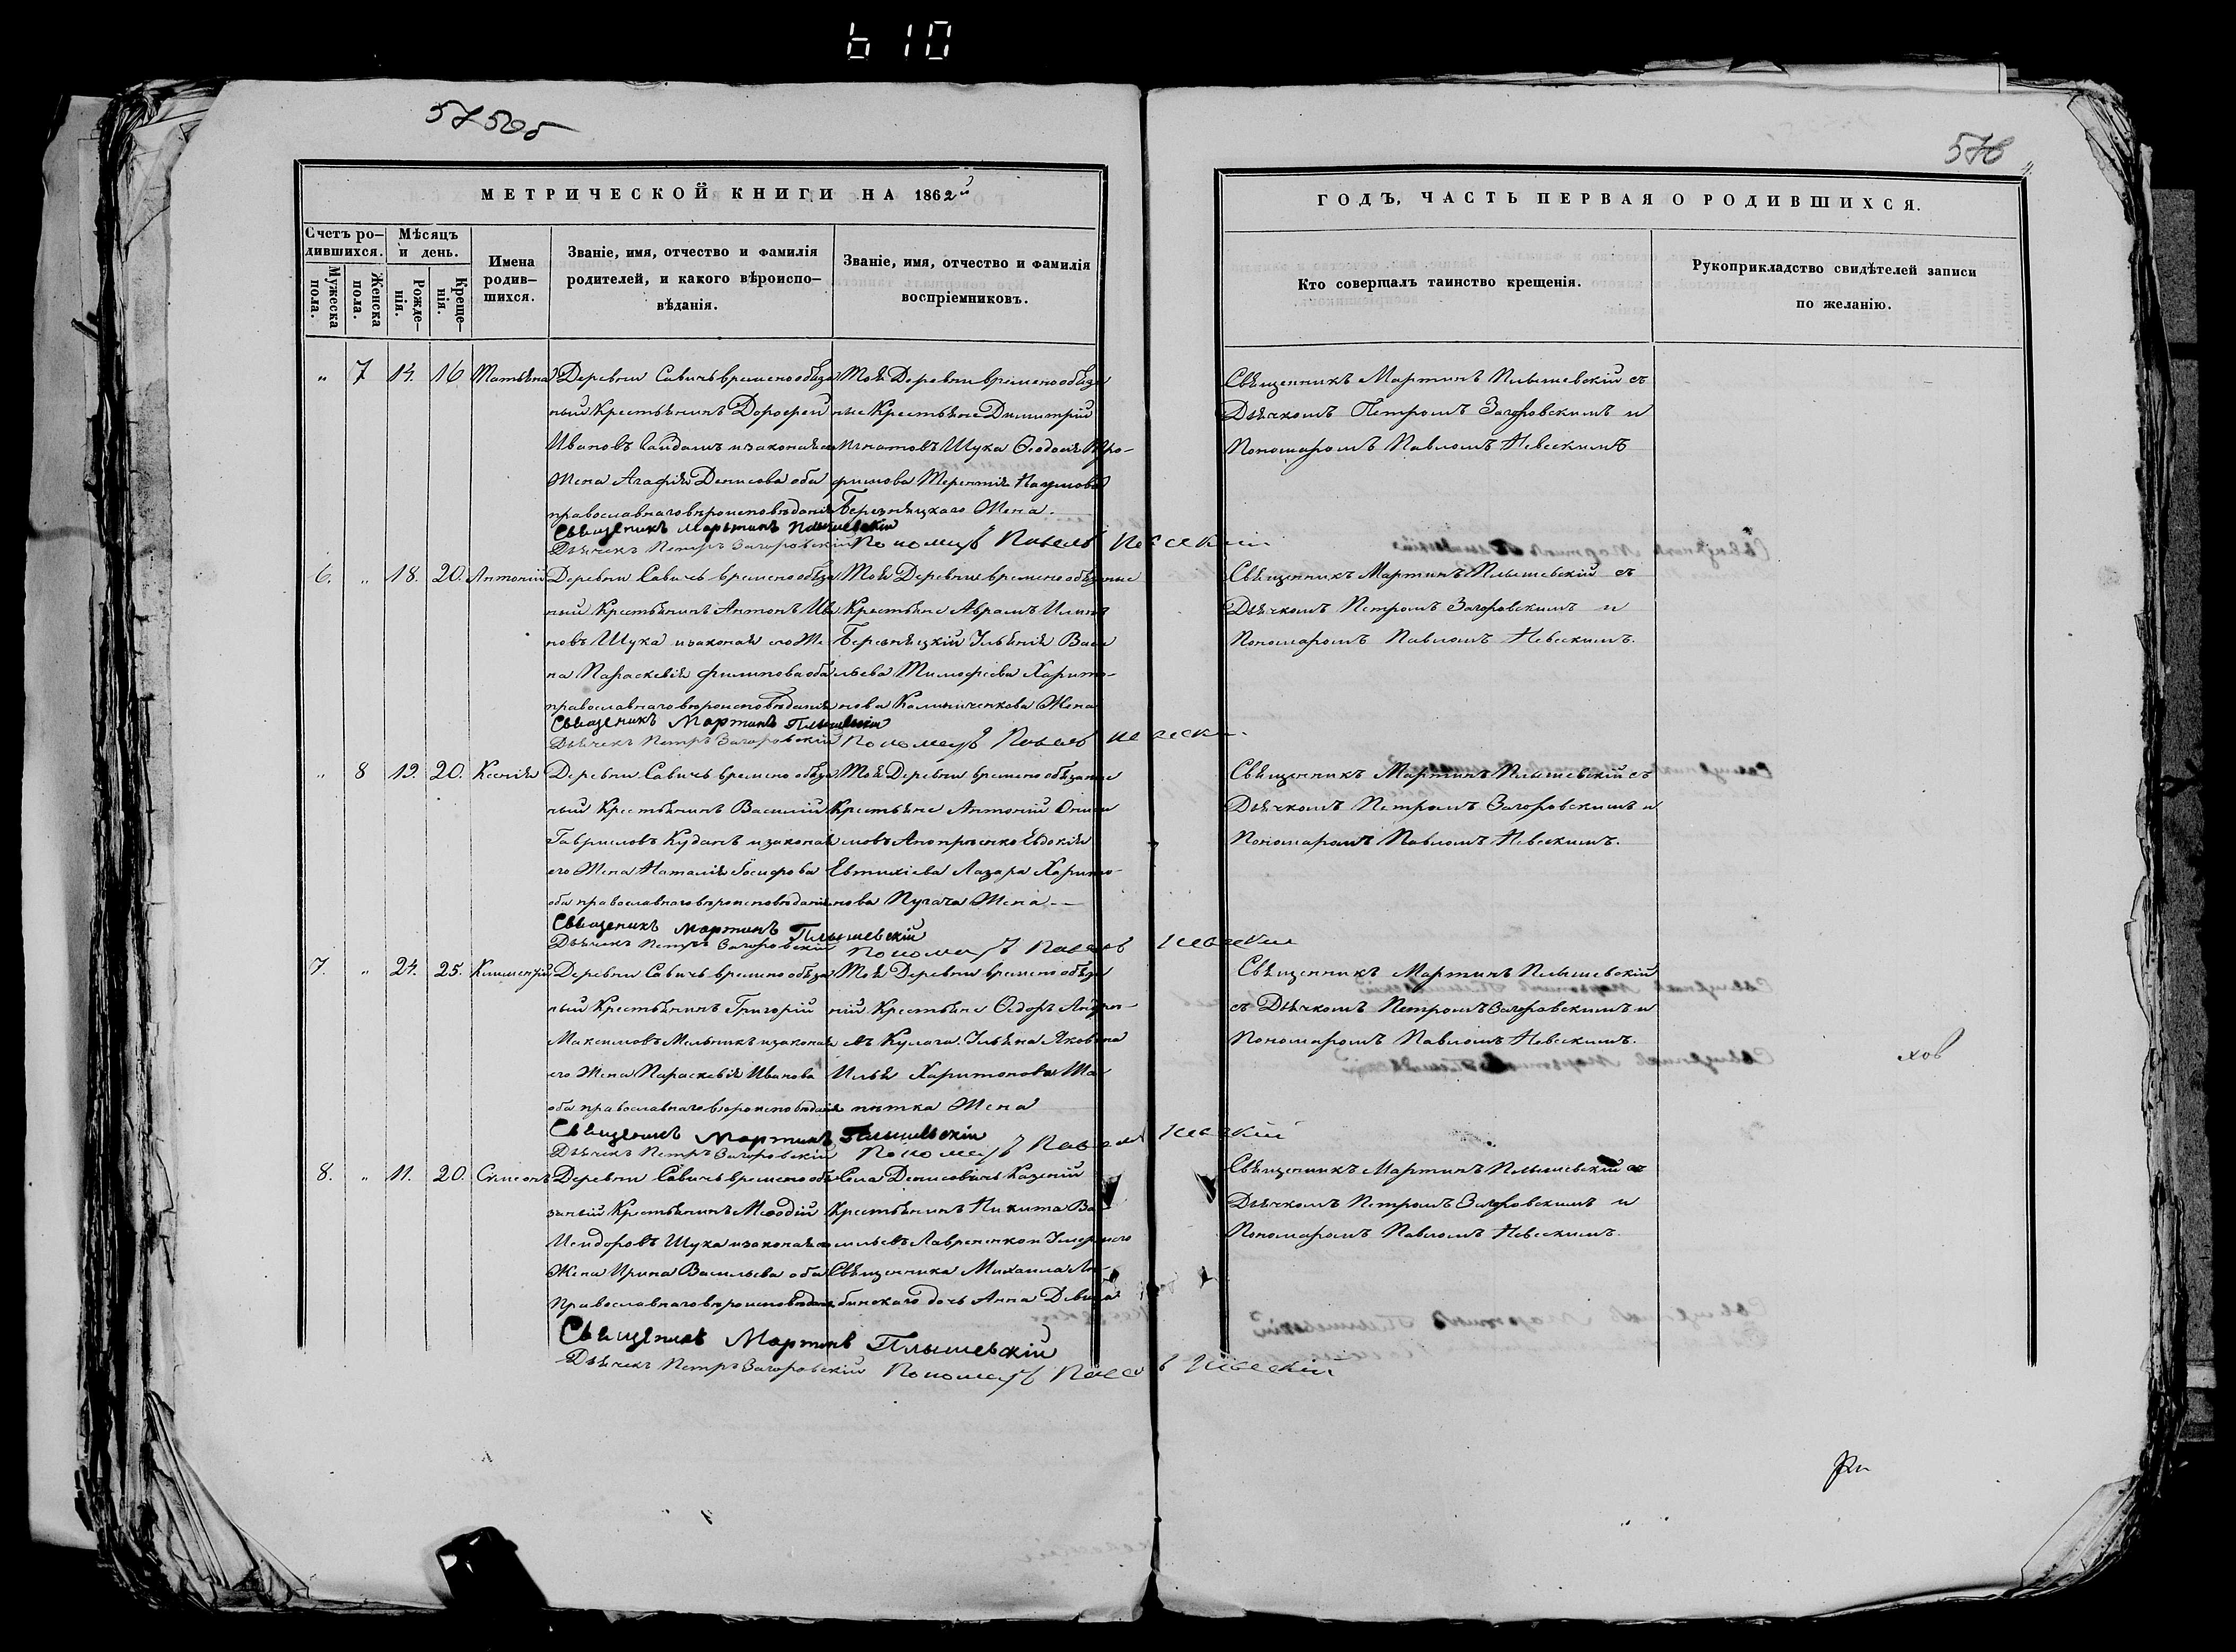 b 10
570
МЕТРИЧЕСКОЙ КНИГИ НА 1862й
Счетъ ро-
дившихся.
Мужеска
пола.
Женска
пола.
Мѣсяцъ
и день.
Рожде-
нія.
Креще-
нія.
Имена
родив-
шихся.
Званіе, имя, отчество и фамилія
родителей, и какого вѣроиспо-
вѣданія.
Званіе, имя, отчество и фамилія
воспріемниковъ.
ГОДЪ, ЧАСТЬ ПЕРВАЯ О РОДИВШИХСЯ.
Кто совершалъ таинство крещенія.
Рукоприкладство свидѣтелей записи
по желанію.
„ 7 14. 16 Татьяна
Деревни Савичь временообяза
ный Крестьянинъ Дорофей
Ивановъ
Жена Агафія Денисова оба
православнаго вѣроисповѣданія
Тоя Деревни временообяза
ные Крестьяне Димитрій
Игнатовъ Щука Ѳеодосія Тро-
фимова Терентія Наумова
Березняцкаго Жена.
Священникъ Мартинъ Плышевскій съ
Дьячкомъ Петромъ Загоровскимъ и
Пономаромъ Павломъ Невскимъ
Священикъ Мартинъ Плышевскій
Дьячекъ Петръ Загоровскій Пономарь Павелъ Невскій
6. „ 18. 20. Антоній
Деревни Савичь временообяза
ный Крестьянинъ Антонъ Ива
новъ Щука изаконая его Же
на Параскевія Филипова оба
православнаго вѣроисповѣданія
Тоя Деревни временообязаные
Крестьяне Аврамъ Илинъ
Березняцкій Ульянія Васи
льева Тимофеева Харито-
нова Калиниченкова Жена
Священникъ Мартинъ Плышевскій съ
Дьячкомъ Петромъ Загоровскимъ и
Пономаромъ Павломъ Невскимъ.
Священикъ Мартинъ Плышевскій
Дьячекъ Петръ Загоровскій Пономарь Павелъ
„ 8 19. 20. Ксенія
Деревни Савичь временообяза
ный Крестьянинъ Василій
Гавриловъ Куданъ изаконая
его Жена Наталія Іосифова
оба православнаго вѣроисповѣданія
Тоя Деревни временообязаные
Крестьяне Антоній Ониси
мовъ Евдокія
Евтихіева Лазара Харито-
нова Пугача Жена
Священникъ Мартинъ Плышевскій съ
Дьячкомъ Петромъ Загоровскимъ и
Пономаромъ Павломъ Невскимъ.
Священикъ Мартинъ Плышевскій
Дьячекъ Петръ Загоровскій Пономарь Павелъ Невскій
7. „ 24. 25. Климентій
Деревни Савичь временообяза
ный Крестьянинъ Григорій
Максимовъ Мельникъ изаконая
его Жена Параскевія Иванова
оба православнаго вѣроисповѣданія
Тоя Деревни временообяза
ній Крестьяне Ѳедоръ Андре-
евъ Кулага. Ульяна Яковлева
Ильи Харитонова Ша-
пятка Жена
Священникъ Мартинъ Плышевскій
съ Дьячкомъ Петромъ Загоравскимъ и
Пономаромъ Павломъ Невскимъ.
хов
Священикъ Мартинъ Плышевскій
Дьячекъ Петръ Загоровскій Пономарь Павелъ Невскій
8. „ 11. 20. Симеонъ
Деревни Савичь временообя
заный Крестьянинъ Меѳодій
Исидоровъ Щука изаконая его
Жена Ирина Васильева оба
Православнаго вѣроисповѣданія
Села Денисовичь Казеній
Крестьянинъ Никита Ва
сильевъ Лаврененко и Умершаго
Священника Михаила
дочь Анна Девица
Священникъ Мартинъ Плышевскій съ
Дьячкомъ Петромъ Загоровскимъ и
Пономаромъ Павломъ Невскимъ.
Священикъ Мартинъ Плышевскій
Дьячекъ Петръ Загоровскій Пономарь Павелъ Невскій